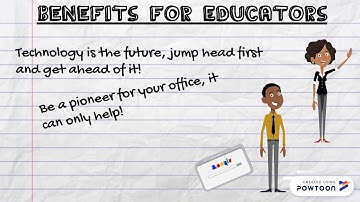 BENEFITS FOR EDUCATORS
Technology is the future, jump head first
and get ahead of it!
Be a pioneer for your office, it
can only help!
Google
CREATED USING
POWTOON